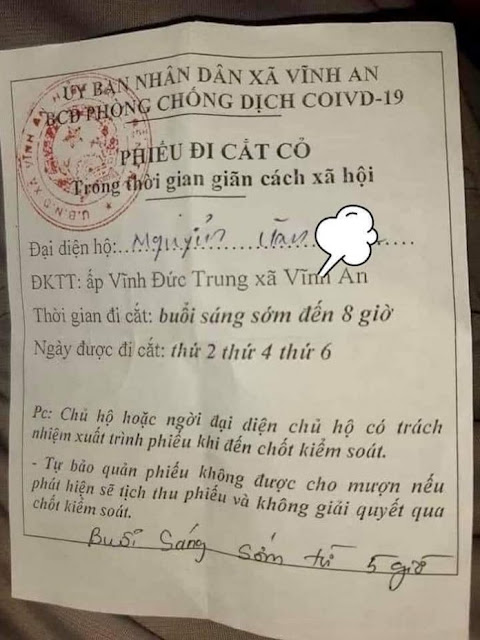 ỦY BAN NHÂN DÂN XÃ VĨNH AN
BCD PHÒNG CHỐNG DỊCH COIVD-19
PHIẾU ĐI CẮT CỎ
Trong thời gian giãn cách xã hội
Đại diện hộ:..Nguyễn Văn
ĐKTT: ấp Vĩnh Đức Trung xã Vĩnh An
Thời gian đi cắt: buổi sáng sớm đến 8 giờ
Ngày được đi cắt: thứ 2 thứ 4 thứ 6
Pc: Chủ hộ hoặc ngời đại diện chủ hộ có trách
nhiệm xuất trình phiếu khi đến chốt kiểm soát.
- Tự bảo quản phiếu không được cho mượn nếu
phát hiện sẽ tịch thu phiếu và không giải quyết qua
chốt kiểm soát.
Buổi Sáng Sớm từ 5 giờ